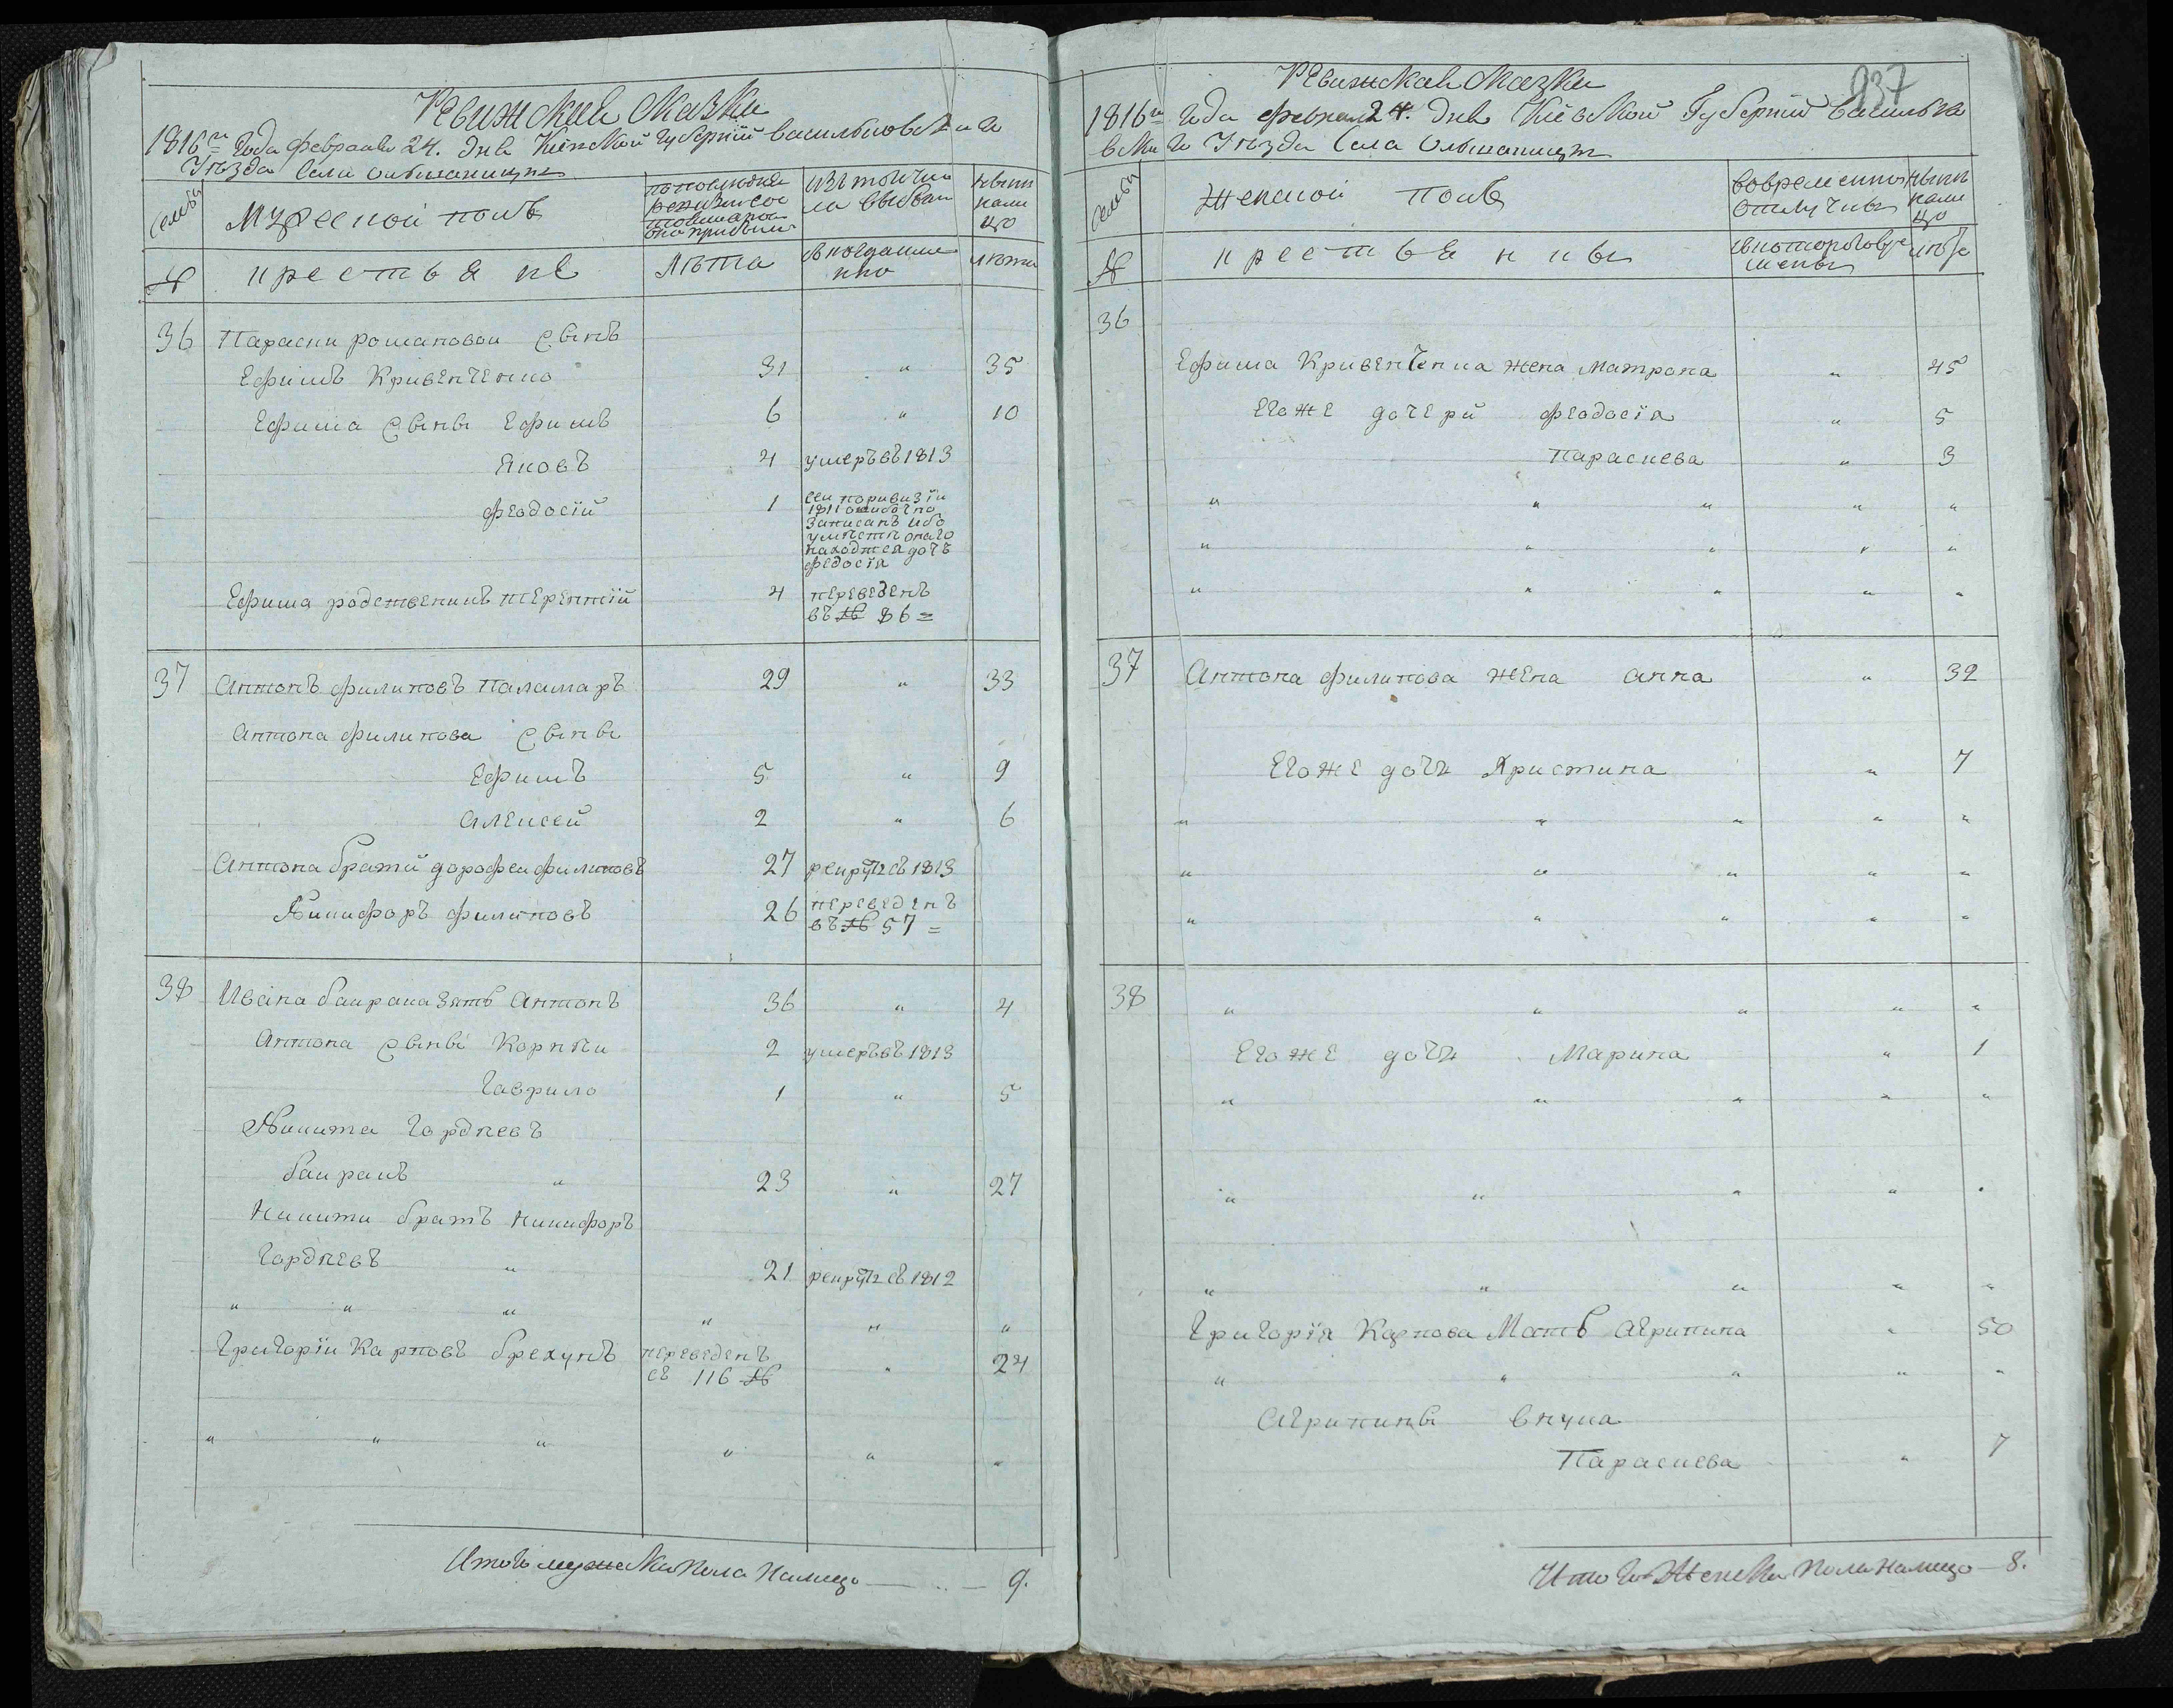 Ревижская сказка
1816го года февраля 24. дня Киевской губернїи васильковского
Уѣзда Села ольшаницы
Семьи
Мужеской полъ
изтого числа выбыли
нынѣ нали цо
№
крестьянѣ
Лѣта
лѣта
36 Параски романовой сынъ
Ефимъ Кривенченко 31 " 35
Ефима сыны Ефимъ 6 " 10
Яковъ 4 умеръ въ 1813
феодосїй 1 сей поривизїи
1811 ошибочно
записанъ ибо
умѣсть онаго
находится дочъ
федосїя
Ефима родственикъ терентїй 4 переведенъ
въ № 86 =
37 Антонъ филиповъ паламаръ 29 " 33
Антона филипова сыны
Ефимъ 5 " 9
Алексей 2 " 6
Антона братй дорофеи филиповъ 27 рекрутъ съ 1813
Никифоръ филиповъ 26 переведенъ
въ № 57 =
38 Ивана баирака зять Антонъ 36 " 4
Антона сыны Корнѣи 2 умеръ въ 1813
Гаврило 1 " 5
Никита Гордѣевъ
баиракъ " 23 " 27
Никити братъ Никифоръ
Гордѣевъ " 21 рекрутъ съ 1812
" " " " " "
Григорїи Карповъ брехунъ переведенъ " 24
съ 116 №
" " " " " "
Итого мужеска пола налицо — 9.
937
Ревижская сказка
1816го года февраля 24. дня Кїевской Губернїи василько
вского Уѣзда Села ольшаницы
Семьи
Женской полъ
вовременной отлучки
нынѣ нали цо
№
крестьянки
36
Ефима Кривенченка жена матрона " 45
Егоже дочери феодосїя " 5
Параскева " 3
" " " " "
" " " " "
" " " " "
37 Антона филипова жена анна " 32
Егоже дочъ Христина " 7
" " " " "
" " " " "
" " " " "
38 " " " " "
Егоже дочъ Марина " 1
" " " " "
" " " " "
" " " " "
Григорїя Карпова Мать Агрипина " 50
" " " " "
Агрипины внука
Параскева " 7
Итого Женска пола налицо — 8.